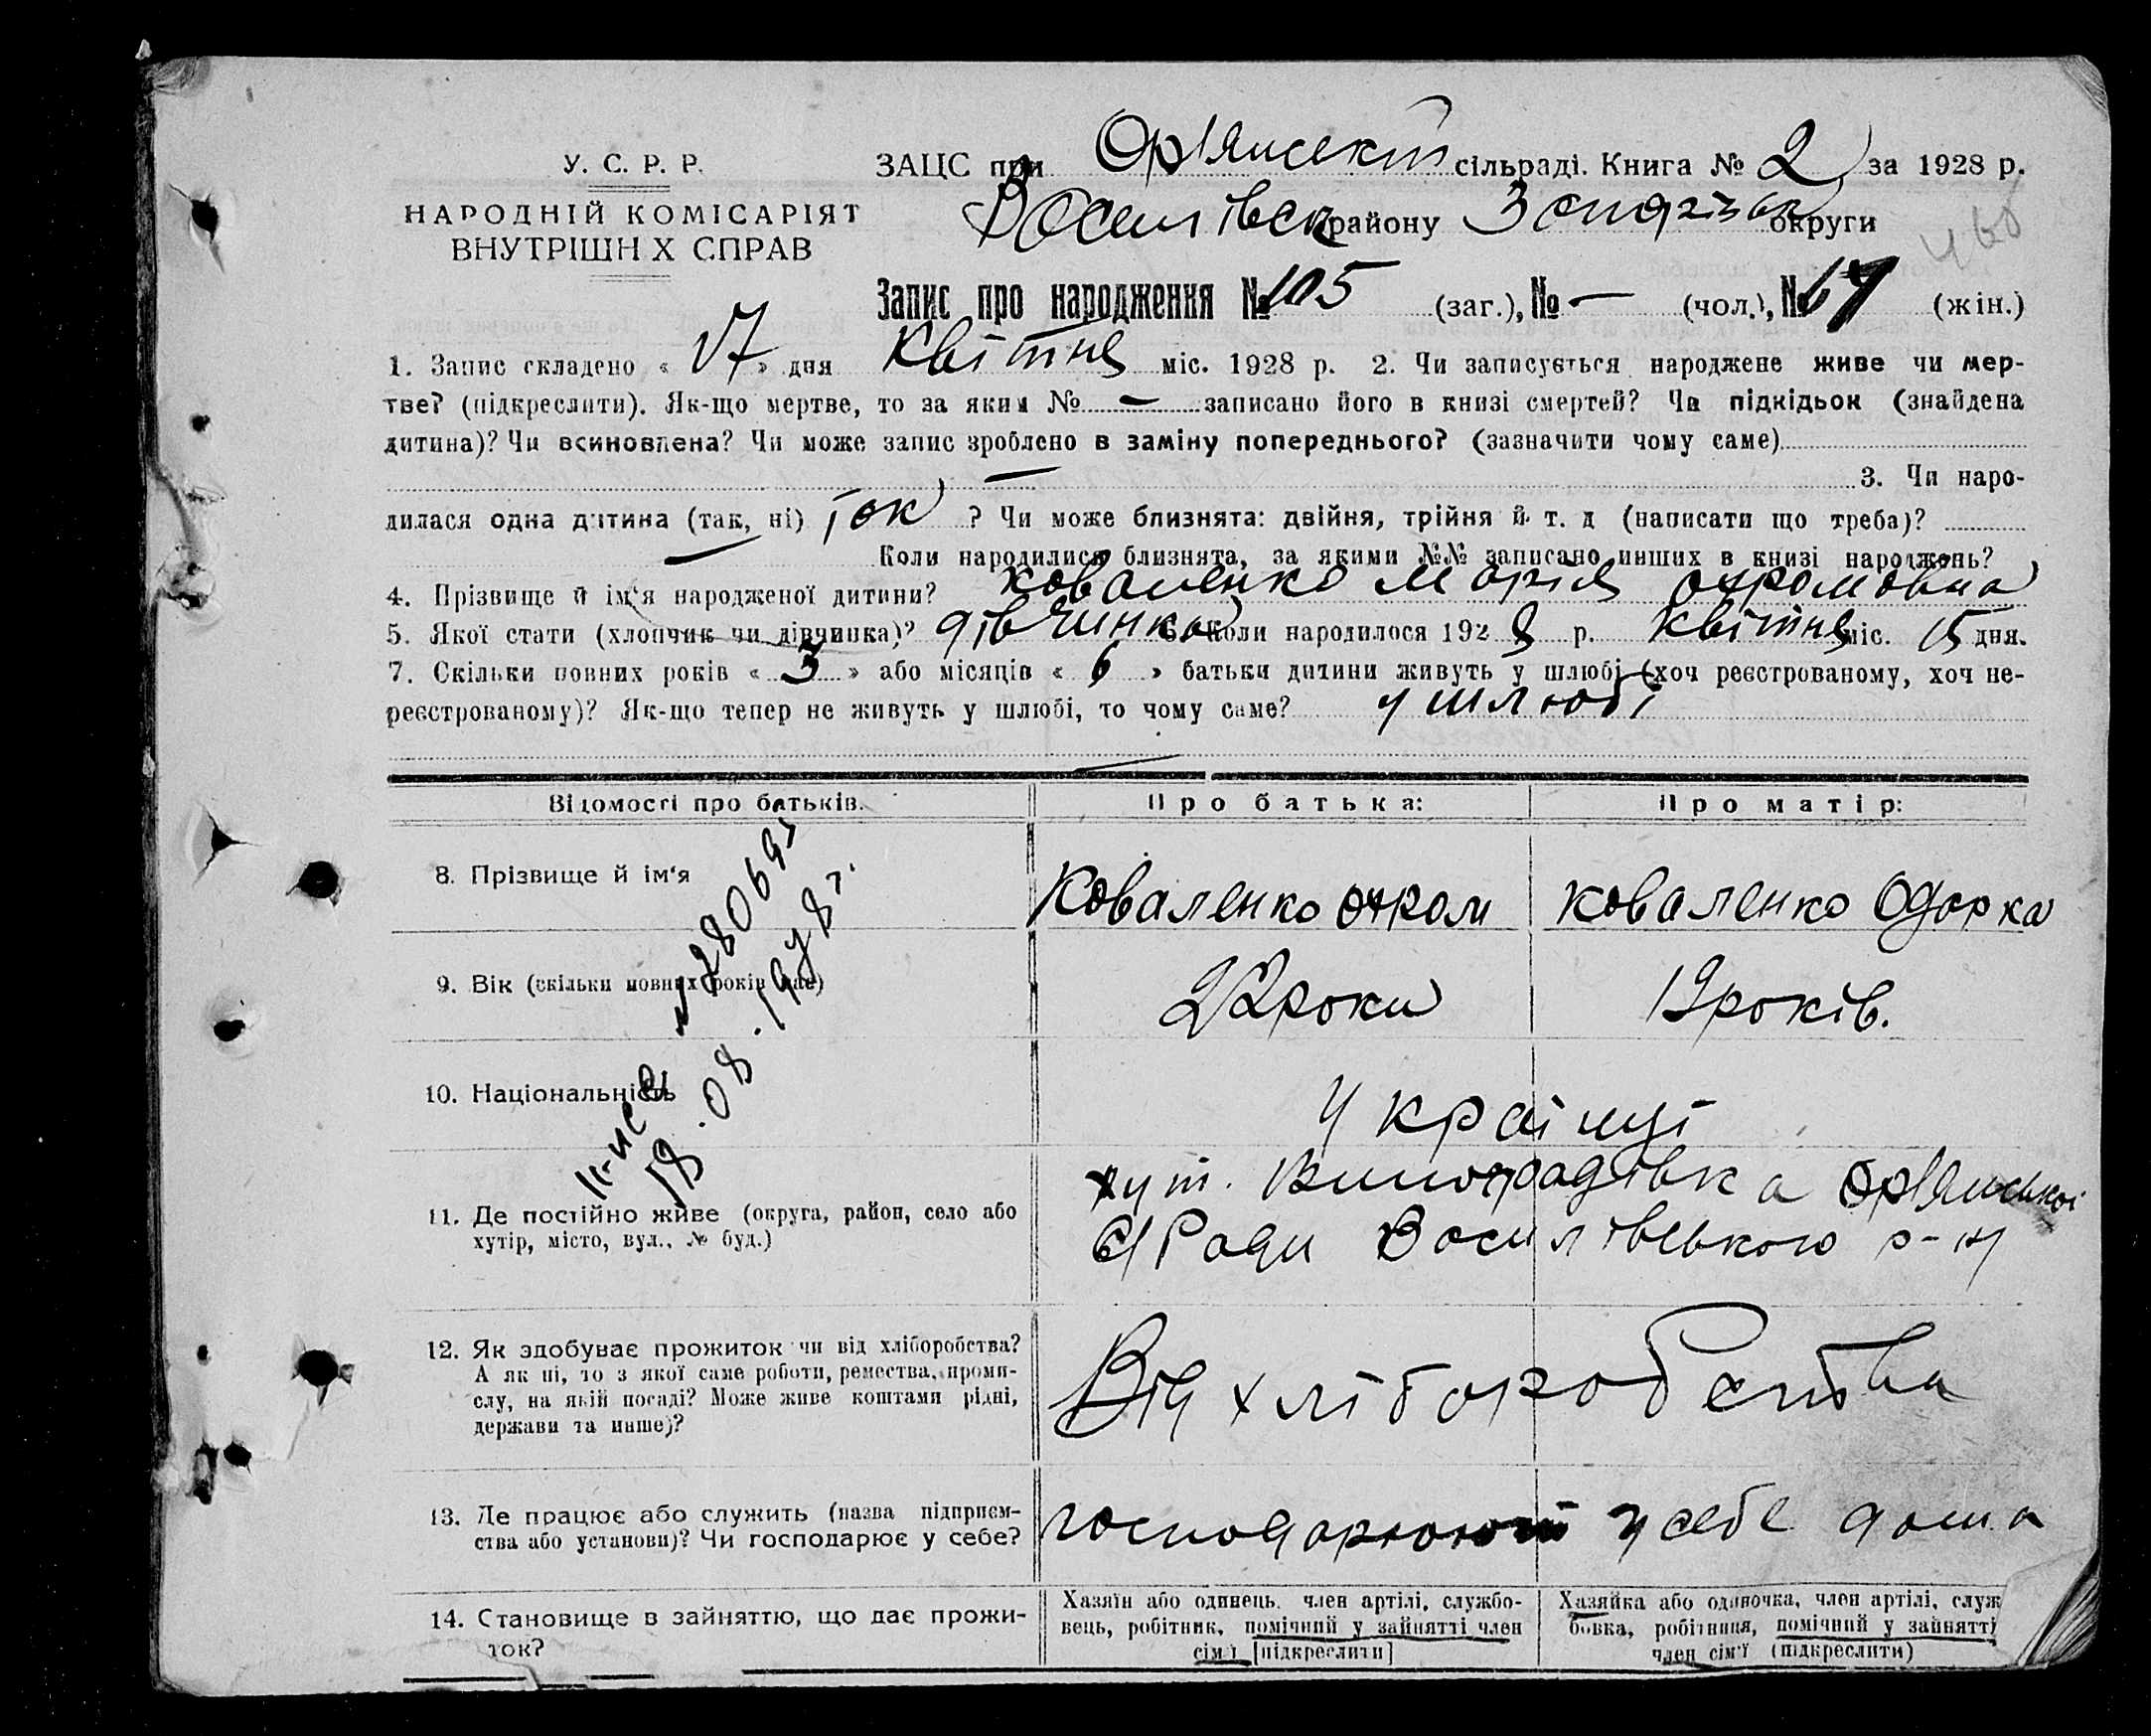 У. С. Р. Р.
НАРОДНІЙ КОМІСАРІЯТ
ВНУТРІШН Х СПРАВ
ЗАЦС при Ор'янській сільраді. Книга № 2 за 1928 р.
Василівськ району Запоріжськ округи
Запис про народження № 105 (заг.), № — (чол.), № (жін.)
1. Запис складено « 17 » дня Квітня міс. 1928 р. 2. Чи записується народжене живе чи мер-
тве? (підкреслити). Як-що мертве, то за яким № — записано його в книзі смертей? Чи підкідьок (знайдена
дитина)? Чи всиновлена? Чи може запис зроблено в заміну попереднього? (зазначити чому саме)
— 3. Чи наро-
дилася одна дитина (так, ні) так ? Чи може близнята: двійня, трійня й т. д (написати що треба)?
— Коли народилися близнята, за якими №№ записано инших в книзі народжень?
4. Прізвище й ім'я народженої дитини? Коваленко Марія Охрамовна
5. Якої стати (хлопчик чи дівчинка)? дівчинка 6. Коли народилося 1928 р. Квітня міс. 15 дня.
7. Скільки повних років « 3 » або місяців « 6 » батьки дитини живуть у шлюбі (хоч реєстрованому, хоч не-
реєстрованому)? Як-що тепер не живуть у шлюбі, то чому саме? у шлюбі
Відомості про батьків.
Про батька:
Про матір:
8. Прізвище й ім'я
Коваленко Охрам
Коваленко Одарка
9. Вік (скільки повних років має)
22 роки
19 років.
10. Національність
Українці
11. Де постійно живе (округа, район, село або
хутір, місто, вул., № буд.)
хут. Виноградівка Ор'янської
с/Ради Василівського р-ну
12. Як здобуває прожиток чи від хліборобства?
А як ні, то з якої саме роботи, ремества, проми-
слу, на якій посаді? Може живе коштами рідні,
держави та инше)?
Від хліборобства
13. Де працює або служить (назва підприєм-
ства або установи)? Чи господарює у себе?
господарюють у себе дома
14. Становище в зайняттю, що дає прожи-
ток?
Хазяїн або одинець, член артілі, службо-
вець, робітник, помічний у зайнятті член
сім'ї [підкреслити]
Хазяйка або одиночка, член артілі, служ
бовка, робітниця, помічний у зайнятті
член сім'ї (підкреслити)
№ 280695
18.08.1978 г.